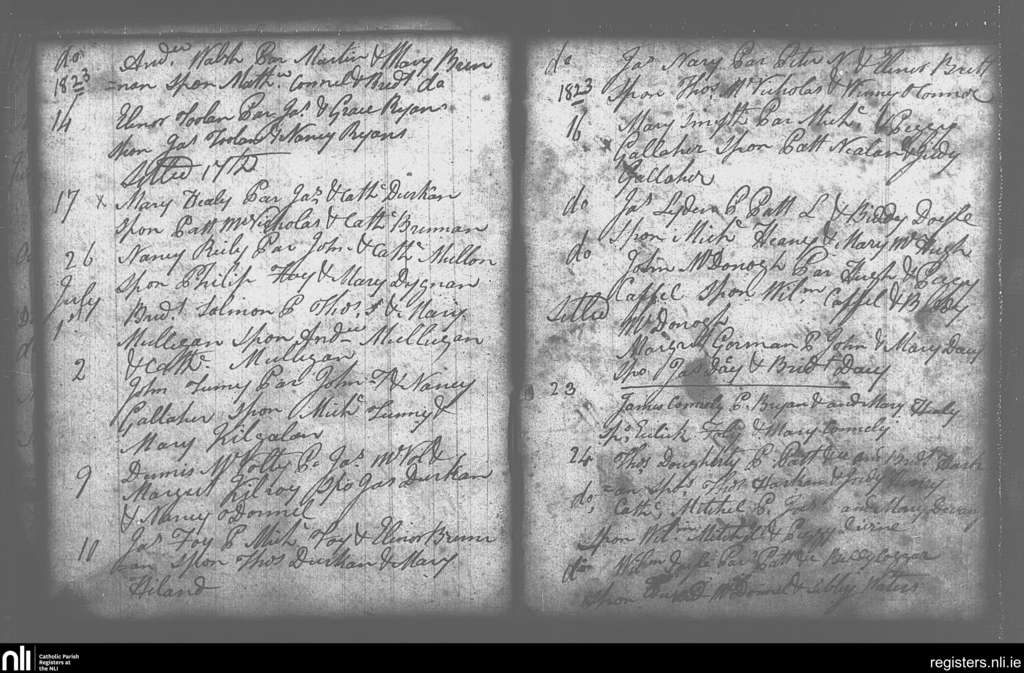 do Andw. Walsh Par Martin & Mary Bren
1823 =nan Spon Matthw Connel & Bridt. do
14 Elinor Toolan Par Jas. & Grace Ryans
Spon Jas Toolan & Nancy Ryans
Setled 17th
17 x Mary Healy Par Jas. & Cathe Durkan
Spon Patt McNicholas & Cathe Brinnan
26 Nancy Reily Par John & Cathe. Mullon
Spon Philip Foy & Mary Dygnan
July 1st Bridt. Salmon P Thos. S & Mary
Mulligan Spon Andw Mullugan
& Cathe. Mulligan
2 John Tunny Par John T & Nancy
Gallaher Spon Michl Tunny &
Mary Kilgalon
9 Dennis McVolty P. Jas McVol &
Margret Kilroy Spo Jas Durkan
& Nancy ODonnel
10 Jas Foy P Michl Foy & Elinor Brenn
Spon Thos Durkan & Mary
Hiland
do Jas Nary Par Peter N & Elinor Brett
1823 Spon Thos McNicholas & Winny OConnor
16 Mary Smyth Par Michl & Peggy
Gallaher Spon Patt Nealan & Judy
Gallaher
do Jas Lyden P Patt L & Biddy Doyle
Spon Michl Heany & Mary McHugh
do John McDonogh Par Hugh & Peggy
Caffel Spon Wilm Caffel & Biddy
Setled McDonogh
Margret Gorman P John & Mary Davy
Spo Jas Davy & Bridt Davy
23 James Connely P. Bryan & and Mary Healy
Spo. Eelick Foly & Mary Connely
24 Thos Dougherty P. Patt and Bridt Hark
=an Spo. Thos Harkan & Judy
do, Cathe Mitchel P. Jas and Mary
Spon Wilm Mitchel & Peggy Divine
do Wilm Par Patt
Spon McDonnel & Libby Waters
nli Catholic Parish
Registers at
the NLI
registers.nli.ie